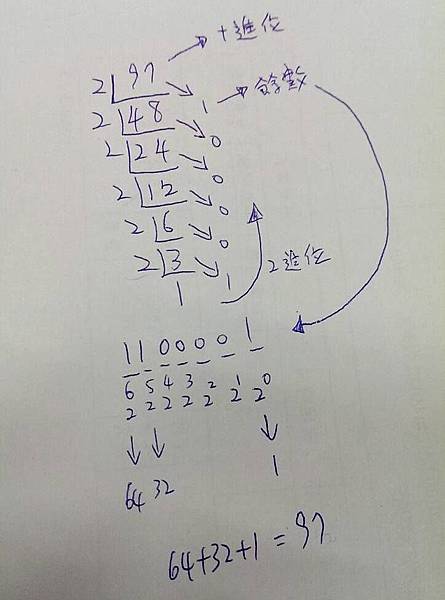 2 97 → 十進位
2 48 1 → 餘數
2 24 0
2 12 0
2 6 0
2 3 0
1 1
2進位
1 1 0 0 0 0 1
2⁶ 2⁵ 2⁴ 2³ 2² 2¹ 2⁰
↓ ↓ ↓
64 32 1
64+32+1=97